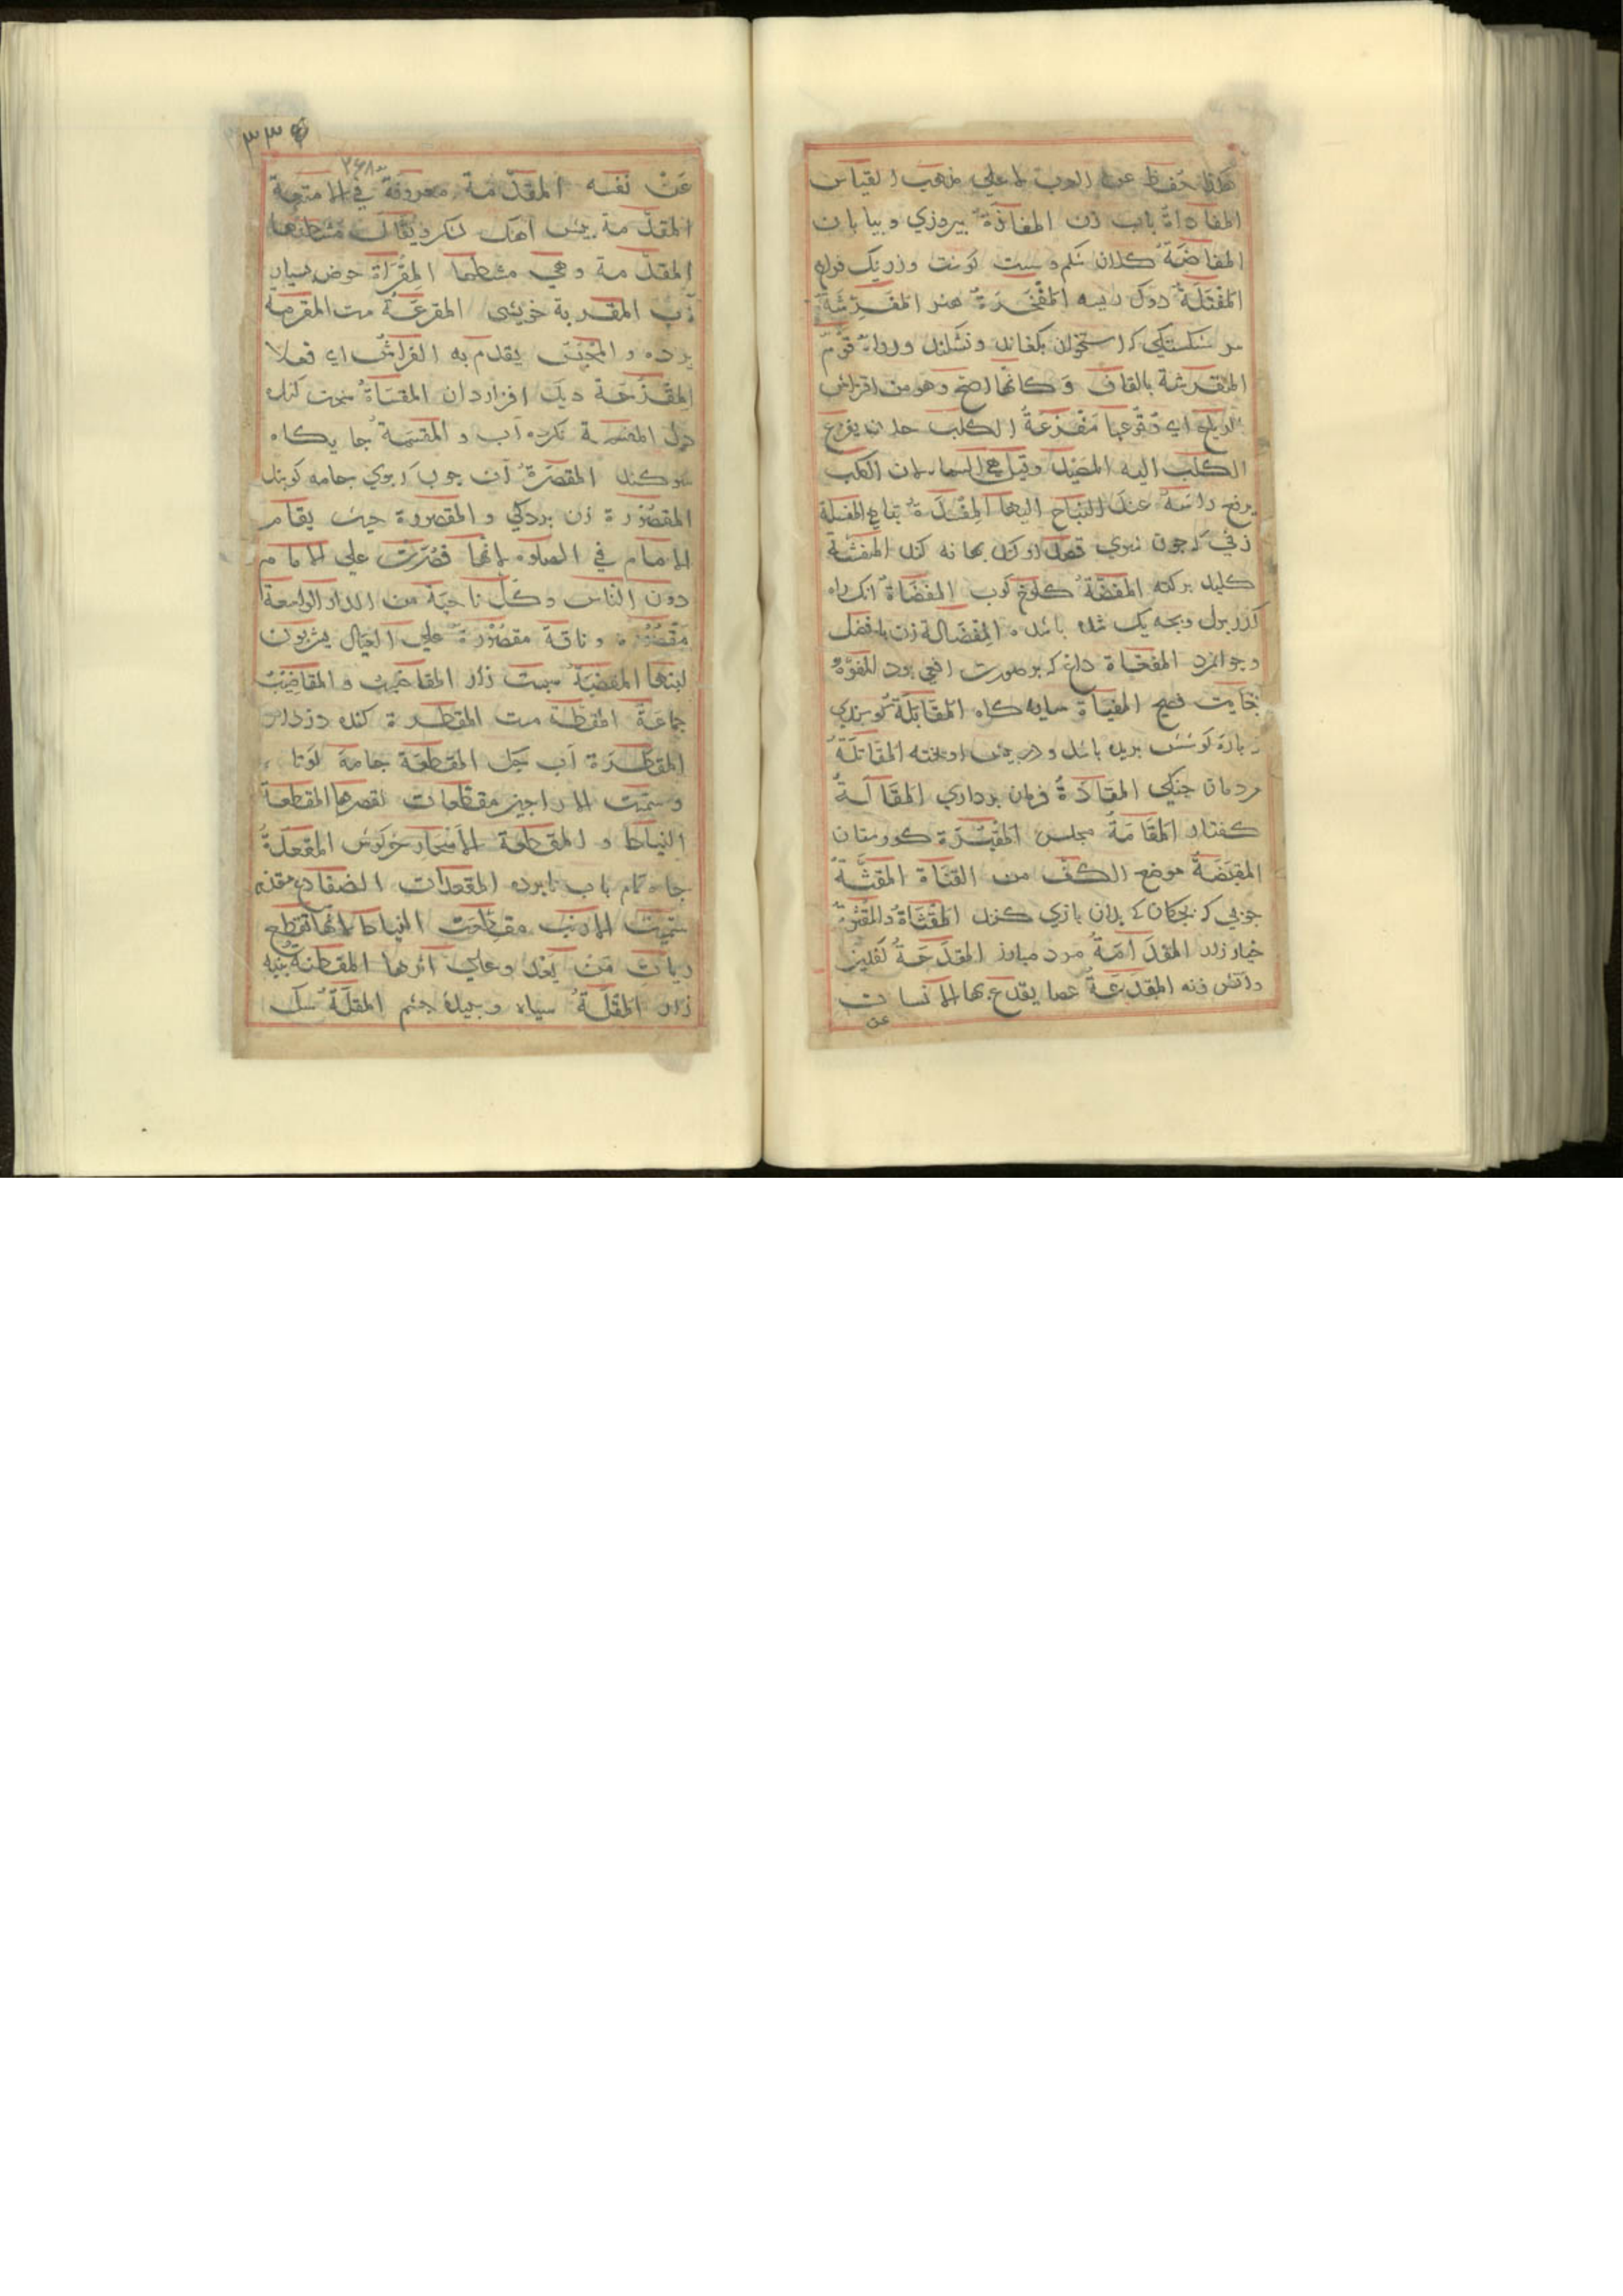 حفاظ عن العرب لا علي مذهب القياس
المفاداة باب زن المفازة پیروزی و بیابان
المفاضة کلان شکم و سست کوشت وزره فراخ
المفتلة دوک ریسه المفخرة هنر المفرشة
سر شکستکی که استخوان بکفاند و نشکند ورواه قوم
المقرشة بالقاف وکانها اصح وهو من اقتراش
الرماح اي تقرعها مفزعة الکلب
الکلب الیه المصید وقیل هي السما لان الکلب
یرفع راسه عند النباح الیها المفسلة
زنی که چون شوی قصد او کند بهانه کند المفشة
کلید برکنه المفضة کلوخ کوب المفضاة انک راه
کذر بول و بچه یک شده باشد المفضالة زن با فضل
و جوانمرد المفعاة داغ که بر صورت افعی بود المفوّه
بغایت فصیح المفیاة سایه کاه المقابلة کوسفندی
پاره کوشش بریده باشد و در پیش اویخته المقاتلة
مردمان جنکی المقادة فرمان برداری المقالة
کفتار المقامة مجلس المقبرة کورستان
المقبضة موضع الکف من القناة المقثة
چوبی که بچکان که بدان بازی کنند المقثاة والمقثوة
خیار زار المقدامة مرد مبارز المقدحة کفلیز
و اتش زنه المقدعة عصا یقدع بها الانسان
عن
٣٣۵
٢۶٨
عن نفسه المقدّمة معروفة في الامتعة
المقدّمة پیش آهنک لشکر ویقال مشطتها
المقدّمة وهي مشطها المقراة حوض بسیار
آب المقربة خویشی المقرعة مت المقرمة
پرده و المحبس یقدم به الفراش اي فعلا
المقزحة دیک افزاردان المقساة سخت کننده
دل المقسمة آب و المقسمة جایکاه
سوکند المقصرة آن چوب که بوی جامه کوبند
المقصورة زن بردکی و المقصورة حیث یقام
الامام في الصلوه لانها قصرت علی الامام
دون الناس وکل ناحیة من الدار الواسعة
مقصورة و ناقة مقصورة علی العیال یشربون
لبنها المقضبة سبست زار المقاضب و المقاضیب
جماعة المقطة مت المقطرة کنده دزدان
المقطرة آب المقطعة جامه کوتاه
وسمیت الاراجیز مقطعات لقصرها المقطعة
النیاط و المقطعة الاسحار خرکوش المقعدة
چاه تمام باب نابرده المقعدات الضفادع
سمیت الارنب مقطعة النیاط لانها تقطع
نیاط من یعدو علی اثرها المقطنة پنبه
زار المقلة سیاه و سپیده چشم المقلة سنک